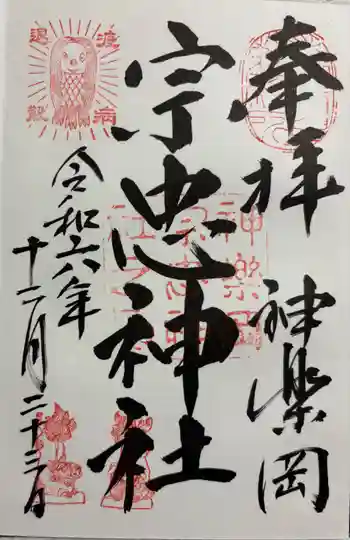 奉拝
神楽岡
宗忠神社
令和六年
十二月二十三日
疫病
退散